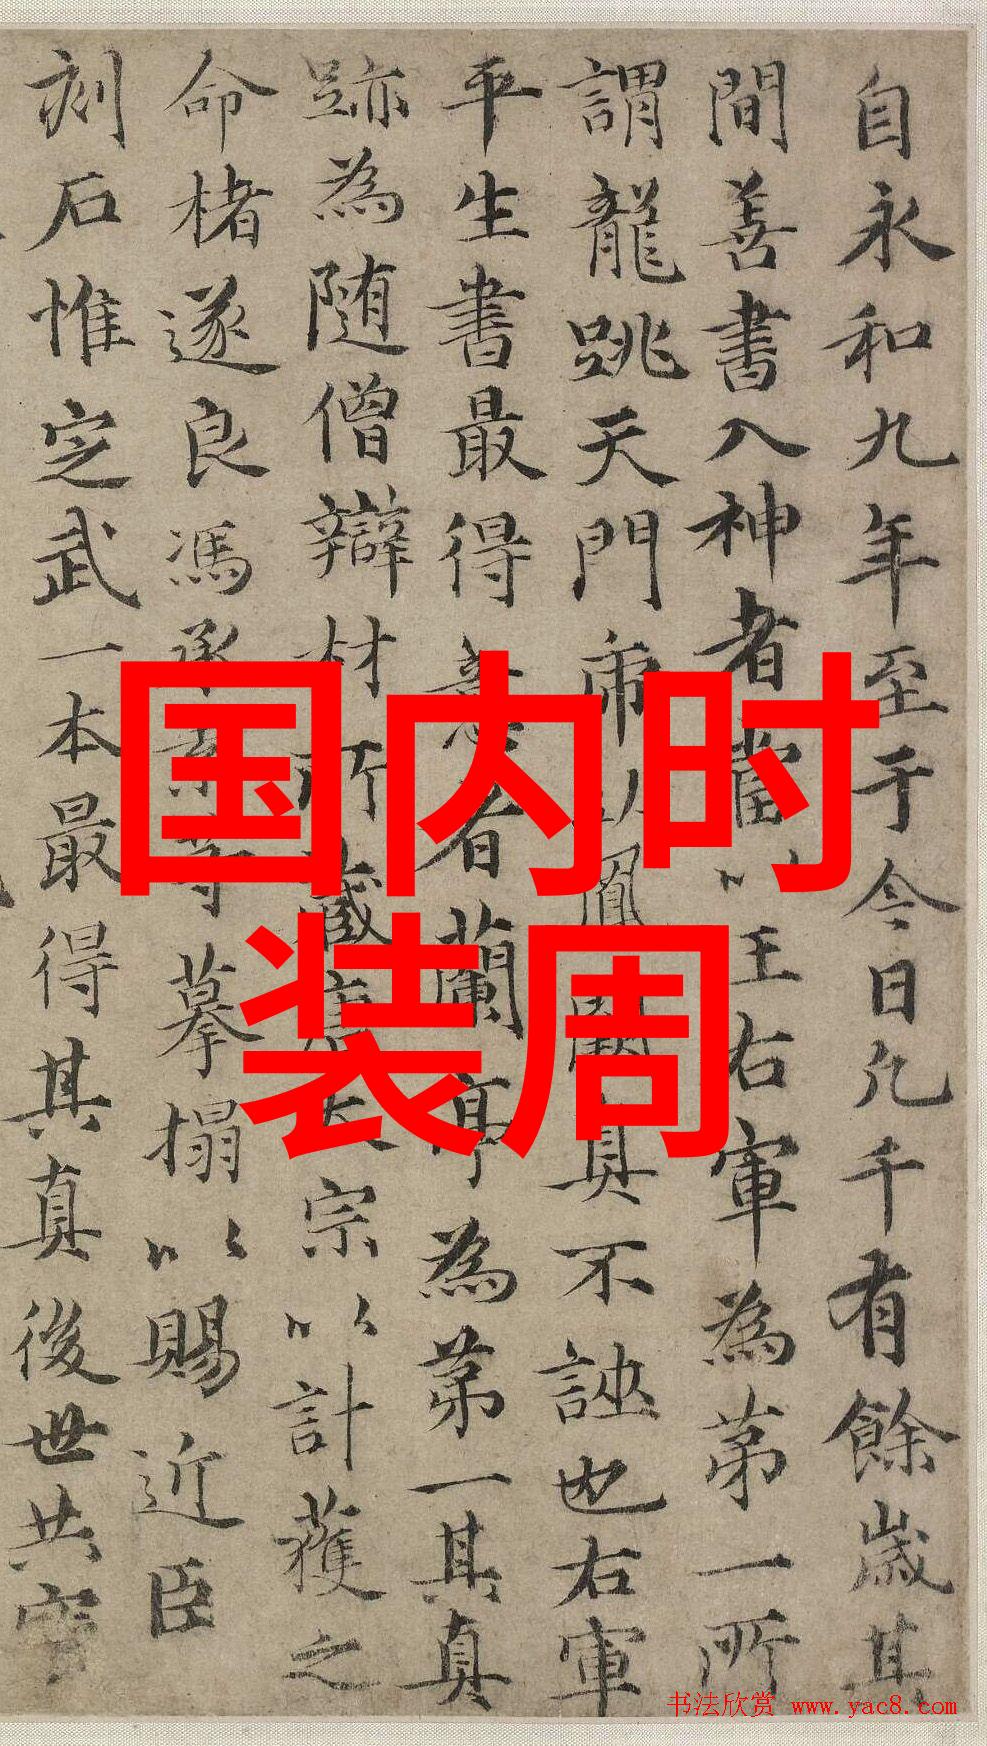 自永和九年至于今日凡千有餘歲其
間善書入神者當以王右軍為第一所
謂龍跳天門鳳真不誣也右軍
平生書最得意者蘭亭為第一其真
跡為随僧辯材所藏唐太宗以計獲之
命楮遂良馮承素等摹搨以賜近臣
刻石惟定武一本最得其真後世共寳
国内时
装周
书法欣赏 www.yac8.com